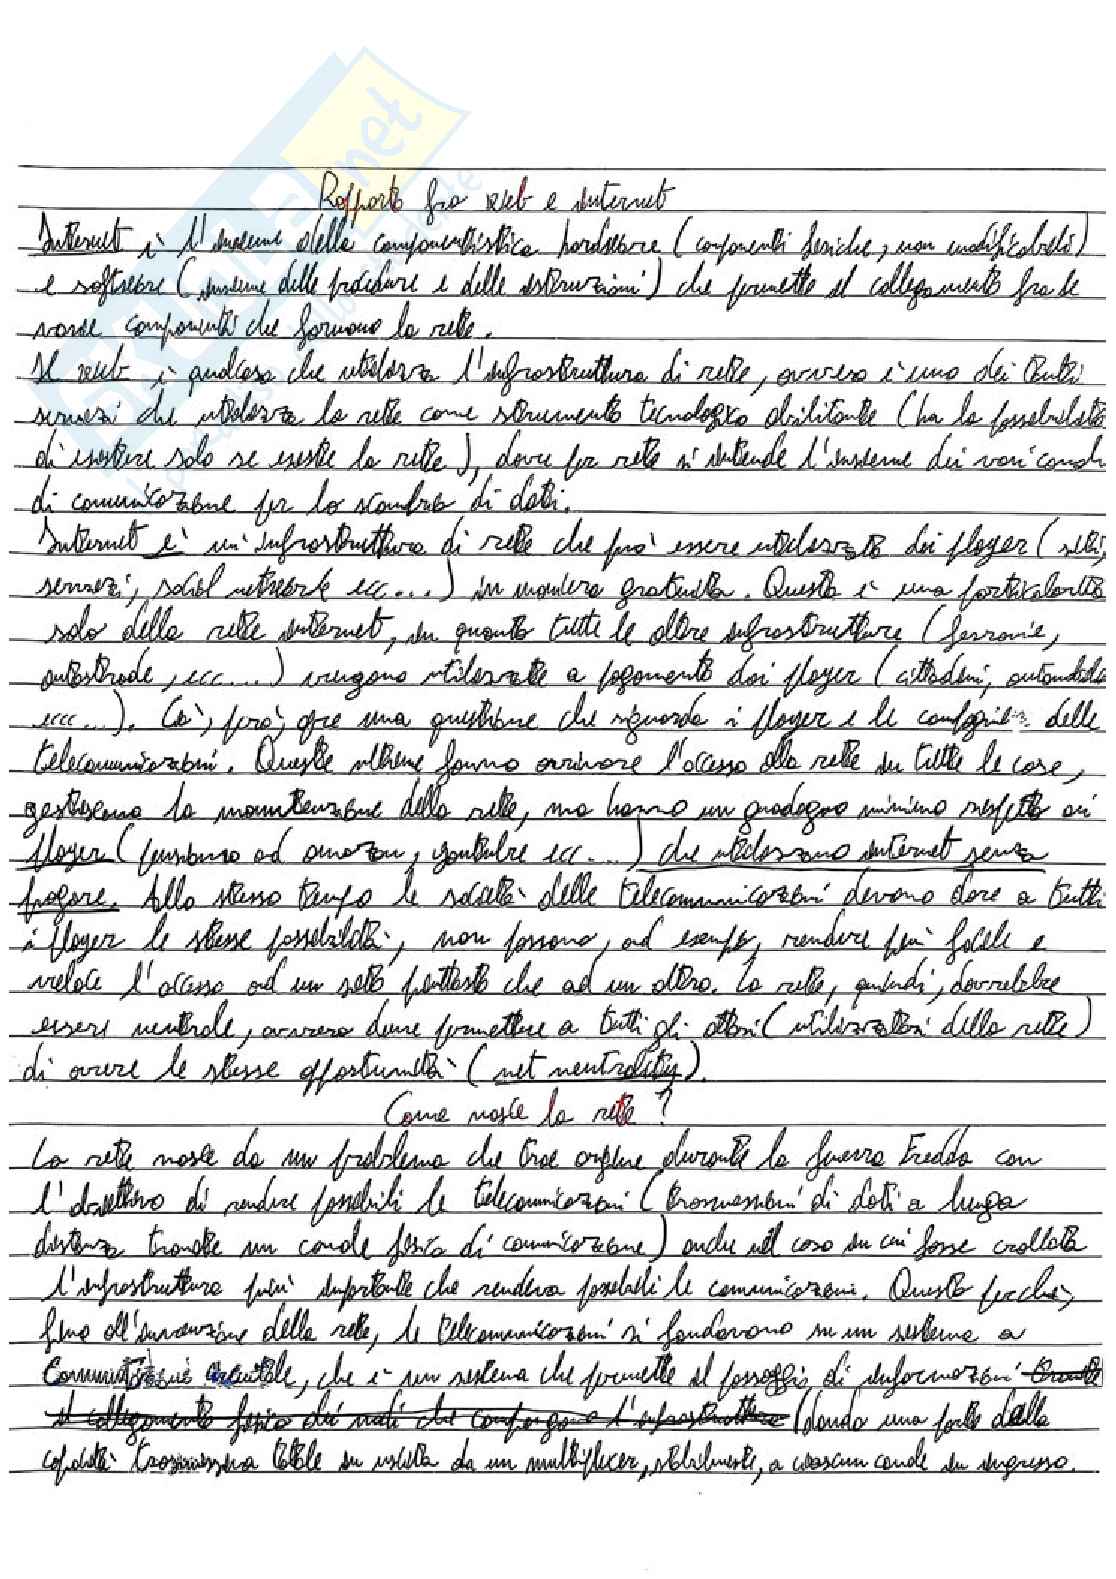 SKUOLA.net
Rapporto fra web e internet
Internet è l'insieme della componentistica hardware (componenti fisiche, non modificabili)
e software (insieme delle procedure e delle istruzioni) che permette il collegamento fra le
varie componenti che formano la rete.
Il web è qualcosa che utilizza l'infrastruttura di rete, ovvero è uno dei tanti
servizi che utilizza la rete come strumento tecnologico abilitante (ha la possibilità
di esistere solo se esiste la rete), dove per rete si intende l'insieme dei vari canali
di comunicazione per lo scambio di dati.
Internet è un'infrastruttura di rete che può essere utilizzata dai player (siti,
servizi, social network ecc...) in maniera gratuita. Questa è una particolarità
solo della rete internet, in quanto tutte le altre infrastrutture (ferrovie,
autostrade, ecc....) vengono utilizzate a pagamento dai player (cittadini, automobili
eccc...). Ciò, però, apre una questione che riguarda i player e le compagnie delle
telecomunicazioni. Queste ultime fanno arrivare l'accesso alla rete in tutte le case,
gestiscono la manutenzione della rete, ma hanno un guadagno minimo rispetto ai
player (pensiamo ad amazon, youtube ecc....) che utilizzano internet senza
pagare. Allo stesso tempo le società delle telecomunicazioni devono dare a tutti
i player le stesse possibilità, non possono, ad esempio, rendere più facile e
veloce l'accesso ad un sito piuttosto che ad un altro. La rete, quindi, dovrebbe
essere neutrale, ovvero deve permettere a tutti gli attori (utilizzatori della rete)
di avere le stesse opportunità (net neutrality).
Come nasce la rete?
La rete nasce da un problema che trae origine durante la Guerra Fredda con
l'obiettivo di rendere possibili le telecomunicazioni (trasmissioni di dati a lunga
distanza tramite un canale fisico di comunicazione) anche nel caso in cui fosse crollata
l'infrastruttura più importante che rendeva possibili le comunicazioni. Questo perché,
fino all'invenzione della rete, le telecomunicazioni si fondavano su un sistema a
circuitale, che è un sistema che permette il passaggio di informazioni tramite
il collegamento fisico dei nodi che compongono l'infrastruttura (dando una parte della
capacità trasmissiva totale in uscita da un multiplexer, stabilmente, a ciascun canale in ingresso.